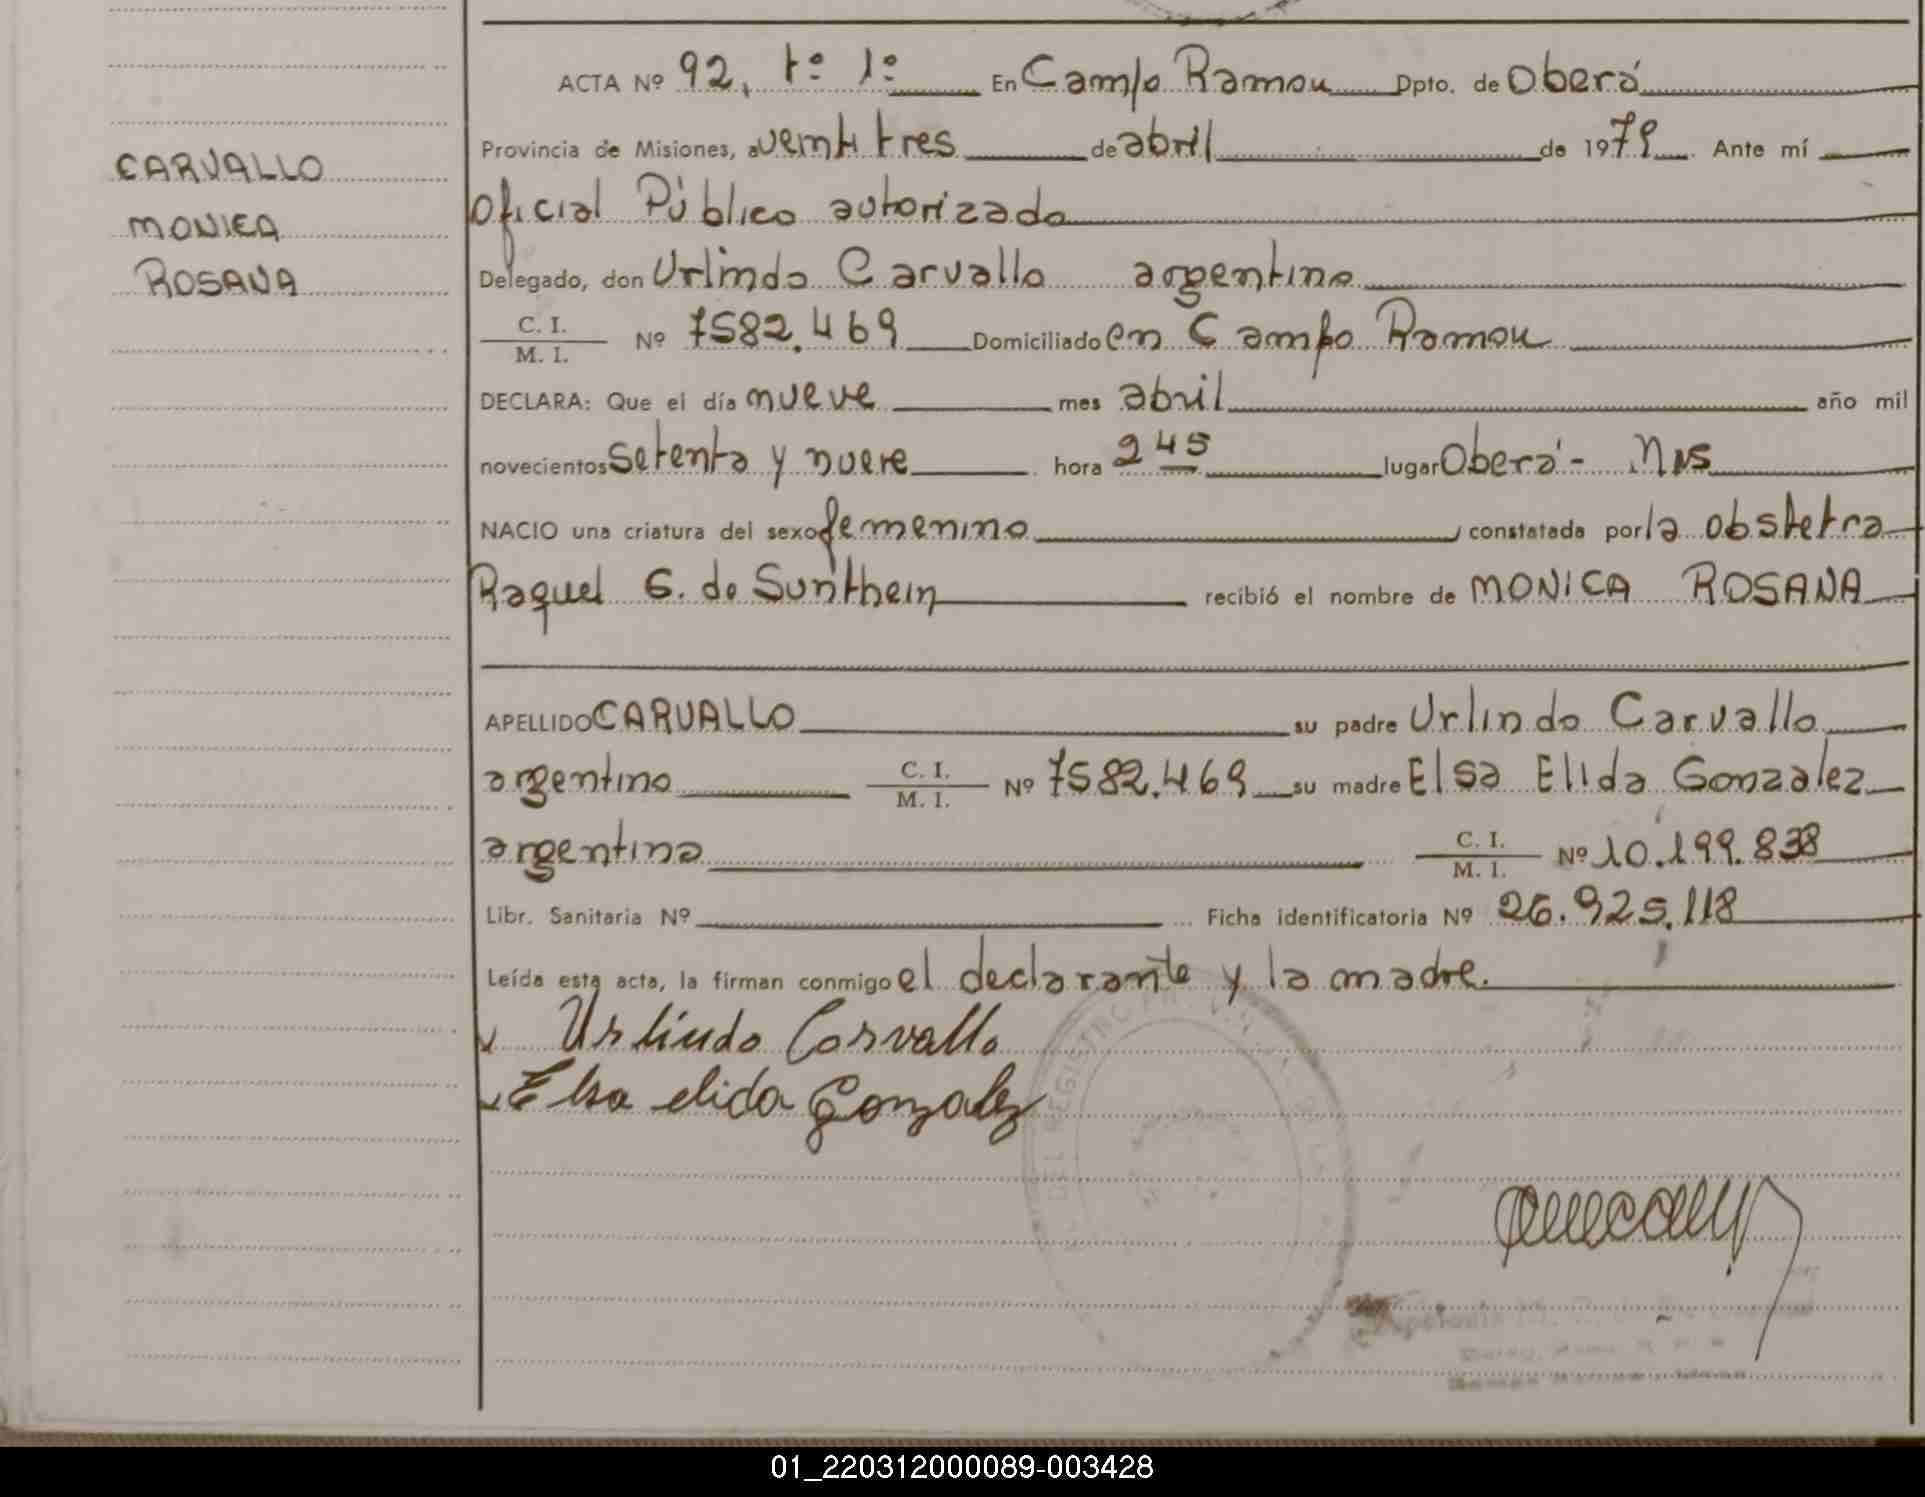 ACTA Nº 92, tº 1º En Campo Ramon Dpto. de Oberá
Provincia de Misiones, a veinti tres de abril de 1979. Ante mí
CARVALLO
Oficial Público autorizado
MONICA
Delegado, don Urlindo Carvallo argentino
ROSANA
C. I.
M. I. Nº 7582.469 Domiciliado en Campo Ramon
DECLARA: Que el día nueve mes abril año mil
novecientos setenta y nueve hora 2 45 lugar Oberá - Mns
NACIO una criatura del sexo femenino constatada por la obstetra
Raquel G. de recibió el nombre de MONICA ROSANA
APELLIDO CARVALLO su padre Urlindo Carvallo
argentino C. I. M. I. Nº 7582.469 su madre Elsa Elida Gonzalez
argentina C. I. M. I. Nº 10.199.838
Libr. Sanitaria Nº Ficha identificatoria Nº 26.925.118
Leída esta acta, la firman conmigo el declarante y la madre.
Urlindo Carvallo
Elsa elida Gonzalez
DEL REGISTRO
01_220312000089-003428